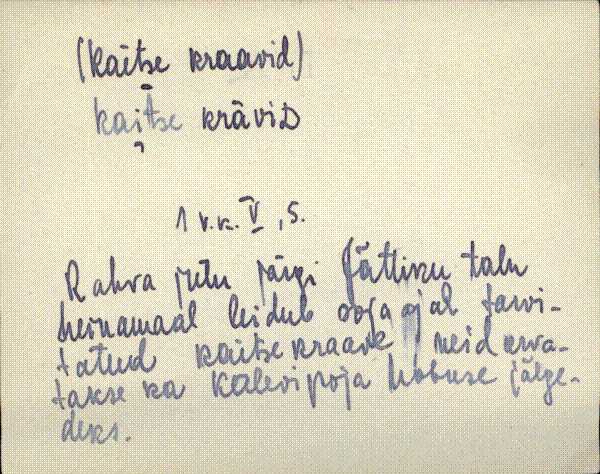 (kaitse kraavid)
kaitse krāviD
1 v.k. V, s.
Rahva jutu järgi Jätliku talu
heinamaal leidub sõja ajal tarvi-
tatud kaitse kraave, neid arva-
takse ka Kalevipoja hobuse jälge-
deks.